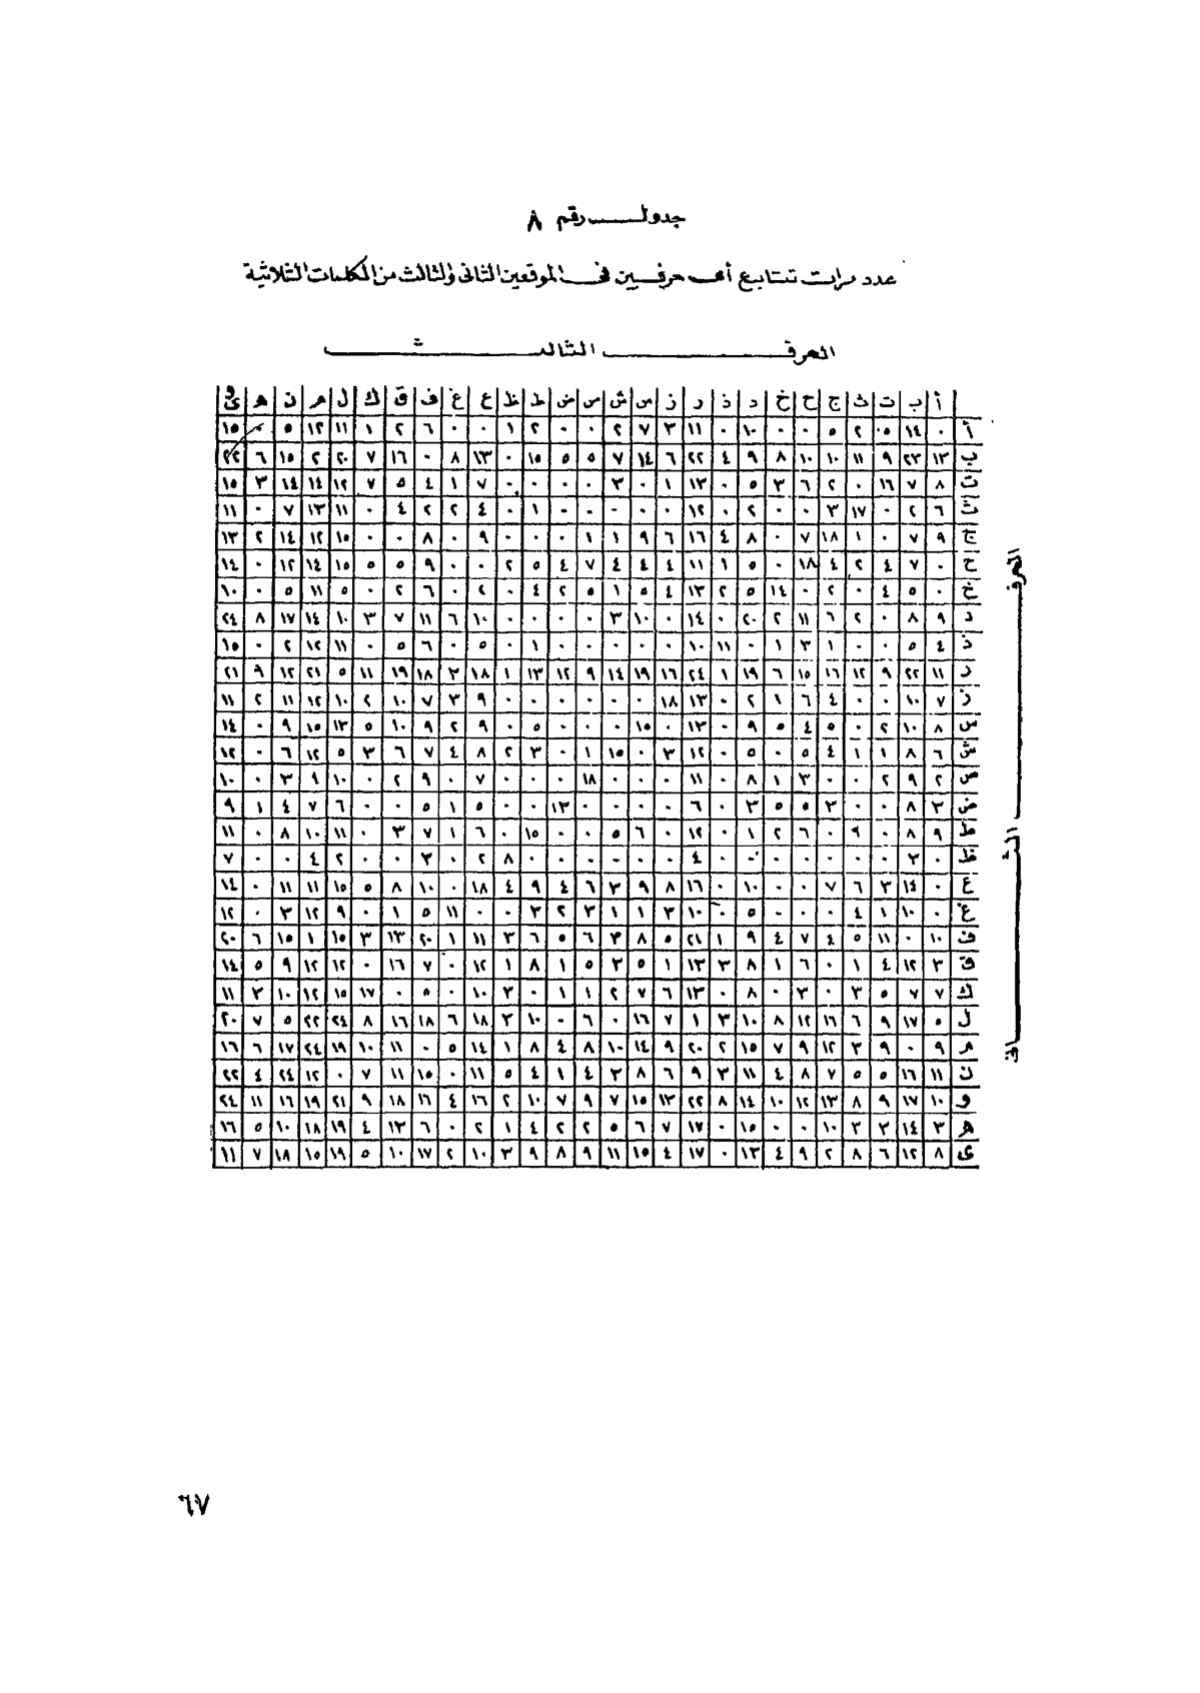 جدول رقم ٨
عدد مرات تتابع أى حرفين فى الموقعين الثانى والثالث من الكلمات الثلاثية
الحرف الثالث
أ ب ت ث ج ح خ د ذ ر ز س ش ص ض ط ظ ع غ ف ق ك ل م ن ه و ى
أ ٠ ١٤ ٥ ٢ ٥ ٠ ٠ ١٠ ٠ ١١ ٣ ٧ ٢ ٠ ٠ ٢ ١ ٠ ٠ ٦ ٢ ١ ١١ ١٢ ٥ ٠ ١٥
ب ١٣ ٢٣ ٩ ١١ ١٠ ١٠ ٨ ٩ ٤ ٢٢ ٦ ١٤ ٧ ٥ ٥ ١٥ ٠ ١٣ ٨ ٠ ١٦ ٧ ٢٠ ٢ ١٥ ٦ ٢٢
ت ٨ ٧ ١٦ ٠ ٢ ٦ ٣ ٥ ٠ ١٣ ١ ٠ ٣ ٠ ٠ ٠ ٠ ٧ ١ ٤ ٥ ٧ ١٢ ١٤ ١٤ ٣ ١٥
ث ٦ ٢ ٠ ١٧ ٣ ٠ ٠ ٢ ٠ ١٢ ٠ ٠ ٠ ٠ ٠ ١ ٠ ٤ ٢ ٢ ٤ ٠ ١١ ١٣ ٧ ٠ ١١
ج ٩ ٧ ٠ ١ ١٨ ٧ ٠ ٨ ٤ ١٦ ٦ ٩ ١ ١ ٠ ٠ ٠ ٩ ٠ ٨ ٠ ٠ ١٥ ١٢ ١٤ ٢ ١٣
ح ٠ ٧ ٤ ٢ ٤ ١٨ ٠ ٥ ١ ١١ ٤ ٤ ٤ ٧ ٤ ٥ ٢ ٠ ٠ ٩ ٥ ٥ ١٥ ١٤ ١٢ ٠ ١٤
خ ٠ ٥ ٤ ٠ ٢ ٠ ١٤ ٥ ٢ ١٣ ٤ ٥ ١ ٥ ٢ ٤ ٠ ٤ ٠ ٦ ٢ ٠ ٥ ١١ ٥ ٠ ١٠
د ٩ ٨ ٠ ٢ ٦ ١١ ٢ ٢٠ ٠ ١٤ ٠ ١٠ ٣ ٠ ٠ ٠ ٠ ١٠ ٦ ١١ ٧ ٣ ١٠ ١٤ ١٧ ٨ ٢٤
ذ ٤ ٥ ٠ ٠ ١ ٣ ١ ٠ ١١ ١٠ ٠ ٠ ٠ ٠ ٠ ١ ٠ ٥ ٠ ٦ ٥ ٠ ١١ ١٢ ٢ ٠ ١٥
ر ١١ ٢٢ ٩ ١٢ ١٦ ١٥ ٦ ١٩ ١ ٢٤ ١٦ ١٩ ١٤ ٩ ١٢ ١٣ ١ ١٨ ٢ ١٨ ١٩ ١١ ٥ ٢١ ١٢ ٩ ٢١
ز ٧ ١٠ ٠ ٠ ٤ ٦ ١ ٢ ٠ ١٣ ١٨ ٠ ٠ ٠ ٠ ٠ ٠ ٩ ٣ ٧ ١٠ ٢ ١٠ ١٢ ١١ ٢ ١١
س ٨ ١٠ ٢ ٠ ٥ ٤ ٥ ٩ ٠ ١٣ ٠ ١٥ ٠ ٠ ٠ ٥ ٠ ٩ ٢ ٩ ١٠ ٥ ١٣ ١٥ ٩ ٠ ١٤
ش ٦ ٨ ١ ١ ٤ ٥ ٠ ٥ ٠ ١٢ ٣ ٠ ١٥ ١ ٠ ٣ ٢ ٨ ٤ ٧ ٦ ٣ ٥ ١٢ ٦ ٠ ١٢
ص ٢ ٩ ٢ ٠ ٠ ٣ ١ ٨ ٠ ١١ ٠ ٠ ٠ ١٨ ٠ ٠ ٠ ٧ ٠ ٩ ٢ ٠ ١٠ ٩ ٣ ٠ ١٠
ض ٣ ٨ ٠ ٠ ٣ ٥ ٥ ٣ ٠ ٦ ٠ ٠ ٠ ٠ ١٣ ٠ ٠ ٥ ١ ٥ ٠ ٠ ٦ ٧ ٤ ١ ٩
ط ٩ ٨ ٠ ٩ ٠ ٦ ٢ ١ ٠ ١٢ ٠ ٦ ٥ ٠ ٠ ١٥ ٠ ٦ ١ ٧ ٣ ٠ ١١ ١٠ ٨ ٠ ١١
ظ ٠ ٣ ٠ ٠ ٠ ٠ ٠ ٠ ٠ ٤ ٠ ٠ ٠ ٠ ٠ ٠ ٨ ٢ ٠ ٣ ٠ ٠ ٢ ٤ ٠ ٠ ٧
ع ٠ ١٤ ٣ ٦ ٧ ٠ ٠ ١٠ ٠ ١٦ ٨ ٩ ٣ ٦ ٤ ٩ ٤ ١٨ ٠ ١٠ ٨ ٥ ١٥ ١١ ١١ ٠ ١٤
غ ٠ ١٠ ١ ٤ ٠ ٠ ٠ ٥ ٠ ١٠ ٣ ١ ١ ٣ ٢ ٣ ٠ ٠ ١١ ٥ ١ ٠ ٩ ١٢ ٣ ٠ ١٢
ف ١٠ ٠ ١١ ٥ ٤ ٧ ٤ ٩ ١ ٢١ ٥ ٨ ٣ ٦ ٥ ٦ ٣ ١١ ١ ٢٠ ١٣ ٣ ١٥ ١ ١٥ ٦ ٢٠
ق ٣ ١٢ ٤ ١ ٠ ٦ ١ ٨ ٣ ١٣ ١ ٥ ٣ ٥ ١ ٨ ١ ١٢ ٠ ٧ ١٦ ٠ ١٢ ١٢ ٩ ٥ ١٤
ك ٧ ٧ ٥ ٣ ٠ ٣ ٠ ٨ ٠ ١٣ ٦ ٧ ٢ ١ ١ ٠ ٣ ١٠ ٠ ٥ ٠ ١٧ ١٥ ١٢ ١٠ ٣ ١١
ل ٥ ١٧ ٩ ٦ ١٦ ١٢ ٨ ١٠ ٣ ١ ٧ ١٦ ٠ ٦ ٠ ١٠ ٣ ١٨ ٦ ١٨ ١٦ ٨ ٢٤ ٢٢ ٥ ٧ ٢٠
م ٩ ٠ ٩ ٣ ١٢ ٩ ٧ ١٥ ٢ ٢٠ ٩ ١٤ ١٠ ٨ ٤ ٨ ١ ١٤ ٥ ٠ ١١ ١٠ ١٩ ٢٤ ١٧ ٦ ١٦
ن ١١ ١٦ ٥ ٥ ٧ ٨ ٤ ١١ ٣ ٩ ٦ ٨ ٣ ٤ ١ ٤ ٥ ١١ ٠ ١٥ ١١ ٧ ٠ ١٢ ٢٤ ٤ ٢٢
و ١٠ ١٧ ٩ ٨ ١٣ ١٢ ١٠ ١٤ ٨ ٢٢ ١٣ ١٥ ٧ ٩ ٧ ١٠ ٢ ١٦ ٤ ١٦ ١٨ ٩ ٢١ ١٩ ١٦ ١١ ٢٤
ه ٣ ١٤ ٢ ٣ ١٠ ٠ ٠ ١٥ ٠ ١٧ ٧ ٦ ٥ ٢ ٢ ٤ ١ ٢ ٠ ٦ ١٣ ٤ ١٩ ١٨ ١٠ ٥ ١٦
ى ٨ ١٢ ٦ ٨ ٢ ٩ ٤ ١٣ ٠ ١٧ ٤ ١٥ ١١ ٩ ٨ ٩ ٣ ١٠ ٢ ١٧ ١٠ ٥ ١٩ ١٥ ١٨ ٧ ١١
الحرف الثانى
٦٧